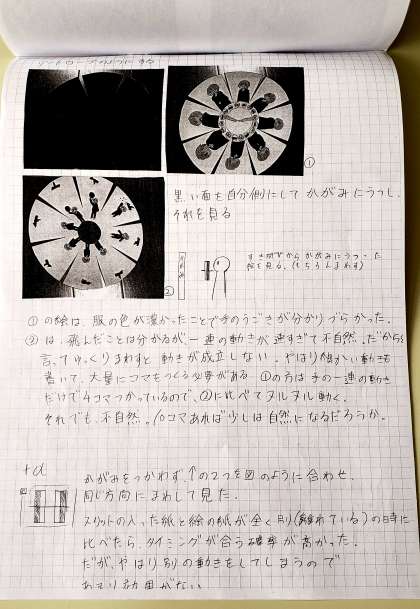 ①
黒い面を自分側にして かがみにうつし、
それを見る
②
すき間からかがみにうつった
絵を見る。(もちろんまわす)
①の絵は、服の色が濃かったことで手のうごきが分かりづらかった。
②は、飛んだことは分かるが、一連の動きが速すぎて不自然。だからと
言ってゆっくりまわすと動きが成立しない。やはり細かい動きを
書いて、大量にコマをつくる必要がある。①の方は手の一連の動き
だけで4コマつかっているので、②に比べてヌルヌル動く。
それでも、不自然。10コマあれば少しは自然になるだろうか。
+α
かがみをつかわず、↑の2つを図のように合わせ、
同じ方向にまわして見た。
図
スリットの入った紙と絵の紙が全く別(離れている)の時に
比べたら、タイミングが合う確率が高かった。
だが、やはり別の動きをしてしまうので
あまり効果がない